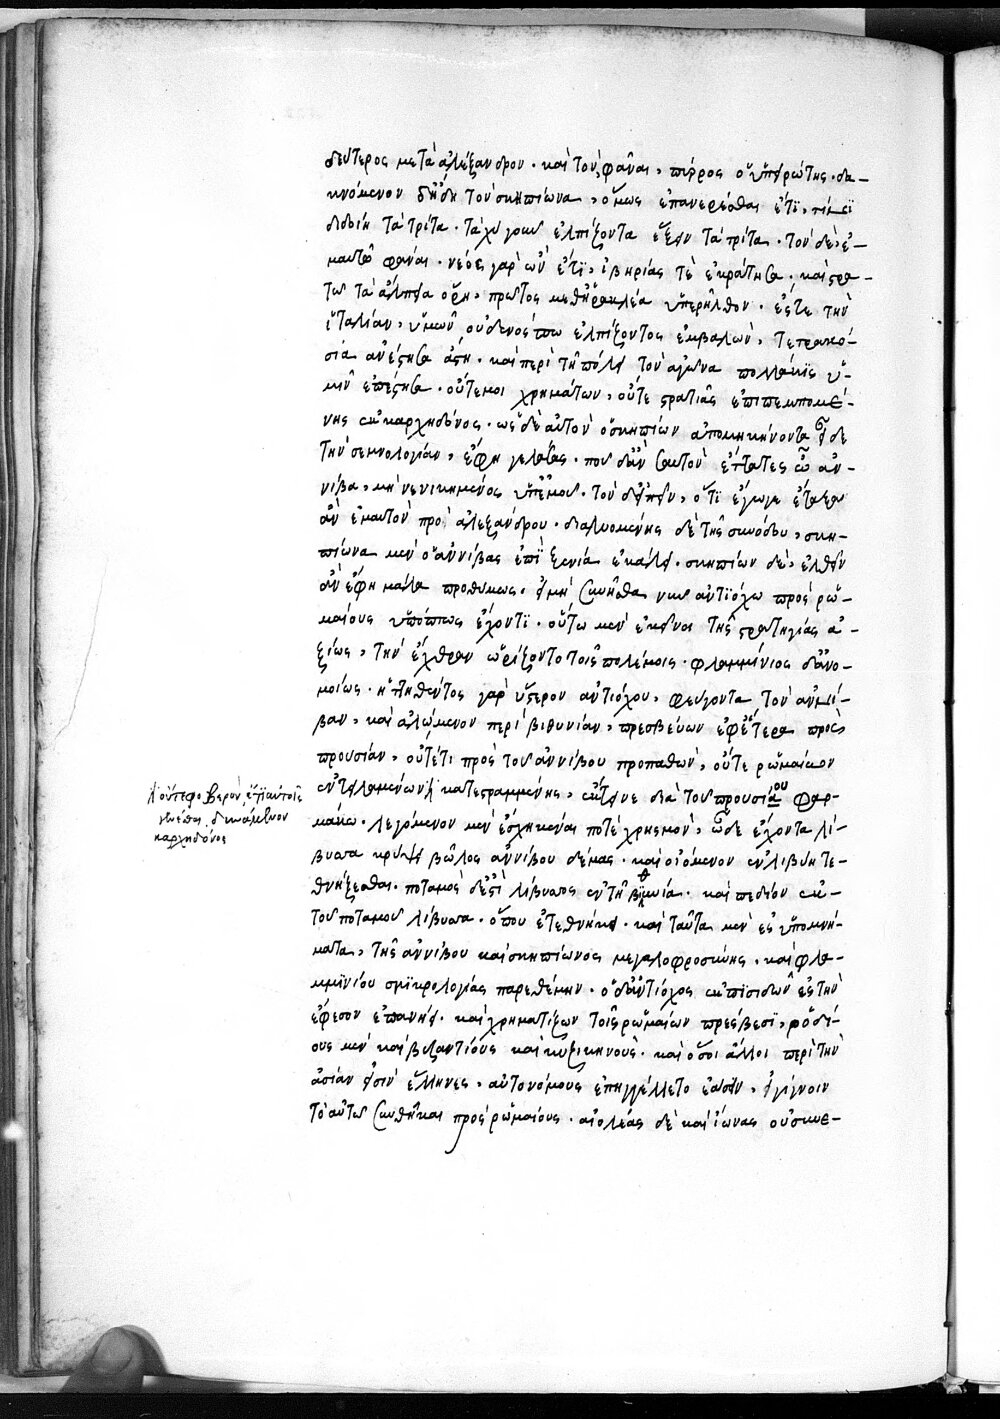 δεύτερος μετὰ ἀλέξανδρον. καὶ τὸν φᾶναι, πύρρος ὁ ἠπειρώτης. δα-
κνόμενον δ' ἤδη τὸν σκηπίωνα, ὅμως ἐπανερέσθαι ἔτι, τίνι
διδοίη τὰ τρίτα. τάχύ γουν ἐλπίζοντα ἕξειν τὰ τρίτα. τὸν δὲ, ἐ-
μαυτῷ φάναι. νέος γὰρ ὢν ἔτι, ἰβηρίας τὲ ἐκράτησα. καὶ στρα-
τῷ τὰ ἄλπεια ὄρη, πρῶτος μεθ' ἡρακλέα ὑπερῆλθον. ἔς τε τὴν
ἰταλίαν, ὑμῶν οὐδενός πω ἐλπίζοντος ἐμβαλὼν, τετρακό-
σια ἀνέστησα ἄστη. καὶ περὶ τῇ πόλει τὸν ἀγῶνα πολλάκις ὑ-
μῖν ἐπέστησα. οὔτέ μοι χρημάτων, οὔτε στρατιᾶς ἐπιπεμπομέ-
νης ἐκ καρχηδόνος. ὡς δὲ αὐτὸν ὁ σκηπίων ἀπομηκύνοντα εἶδε
τὴν σεμνολογίαν, ἔφη γελάσας. ποῦ δ' ἂν ἑαυτὸν ἔταττες ὦ ἀν-
νίβα, μὴ νενικημένος ὑπ' ἐμοῦ. τὸν δ' εἰπεῖν, ὅτι ἔγωγε ἔταξα
ἂν ἐμαυτὸν πρὸ ἀλεξάνδρου. διαλυομένης δὲ τῆς συνόδου, σκη-
πίωνα μὲν ὁ ἀννίβας ἐπὶ ξενία ἐκάλει. σκηπίων δὲ, ἐλθεῖν
ἂν ἔφη μάλα προθύμως. εἰ μὴ συνῆσθα νῦν ἀντιόχω πρὸς ῥω-
μαίους ὑπόπτως ἔχοντι. οὕτω μὲν ἐκεῖνοι τῆς στρατηγίας ἀ-
ξίως, τὴν ἔχθραν ὡρίζοντο τοῖς πολέμοις. φλαμμίνιος δ' ἀνο-
μοίως. ἡττηθέντος γὰρ ὕστερον ἀντιόχου, φεύγοντα τὸν ἀννί-
βαν, καὶ ἀλώμενον περὶ βιθυνίαν, πρεσβεύων ἐφ' ἕτερα πρὸς
προυσίαν, οὔτέ τι πρὸς τοῦ ἀννίβου προπαθὼν, οὔτε ῥωμαίων
ἐντειλαμένων κατεστραμμένης, ἔκτεινε διὰ τοῦ προυσίου φαρ-
μάκω. λεγόμενον μὲν ἐσχηκέναι ποτὲ χρησμὸν, ὧδε ἔχοντα λί-
οὔτε φοβερὸν ἔτι αὐτοῖς
γενέσθαι δυνάμενον
καρχηδόνος
βυσσα κρύψει βῶλος ἀννίβου δέμας. καὶ οἰόμενον ἐν λιβύη τε-
θνήξεσθαι. ποταμὸς δ' ἐστὶ λίβυσσος ἐν τῇ βιθυνία. καὶ πεδίον ἐκ
τοῦ ποταμοῦ λίβυσσα. ὅπου ἐτεθνήκει. καὶ ταῦτα μὲν ἐς ὑπομνή-
ματα, τῆς ἀννίβου καὶ σκηπίωνος μεγαλοφροσύνης. καὶ φλα-
μμινίου σμικρολογίας παρεθέμην. ὁ δ' ἀντίοχος ἐκ πισιδῶν ἐς τὴν
ἔφεσον ἐπανήει. καὶ χρηματίζων τοῖς ῥωμαίων πρέσβεσι, ῥοδί-
ους μὲν καὶ βυζαντίους καὶ κυζικηνοὺς. καὶ ὅσοι ἄλλοι περὶ τὴν
ἀσίαν εἰσὶν ἕλληνες, αὐτονόμους ἐπηγγέλλετο ἐάσειν, εἰ γίγνοιν
το αὐτῷ συνθῆκαι πρὸς ῥωμαίους. αἰολέας δὲ καὶ ἴωνας οὐ συνε-